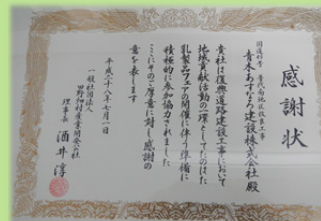 感謝状
国道45号 普代南地区改良工事
青木あすなろ建設株式会社 殿
貴社は復興道路建設工事において
地域貢献活動の一環としてたのはた
乳製品フェアの開催に伴う準備に
積極的に参加協力されました
ここにその厚意に対し感謝の
意を表します
平成二十八年七月一日
一般社団法人
田野畑村産業開発公社
理事長 酒井淳